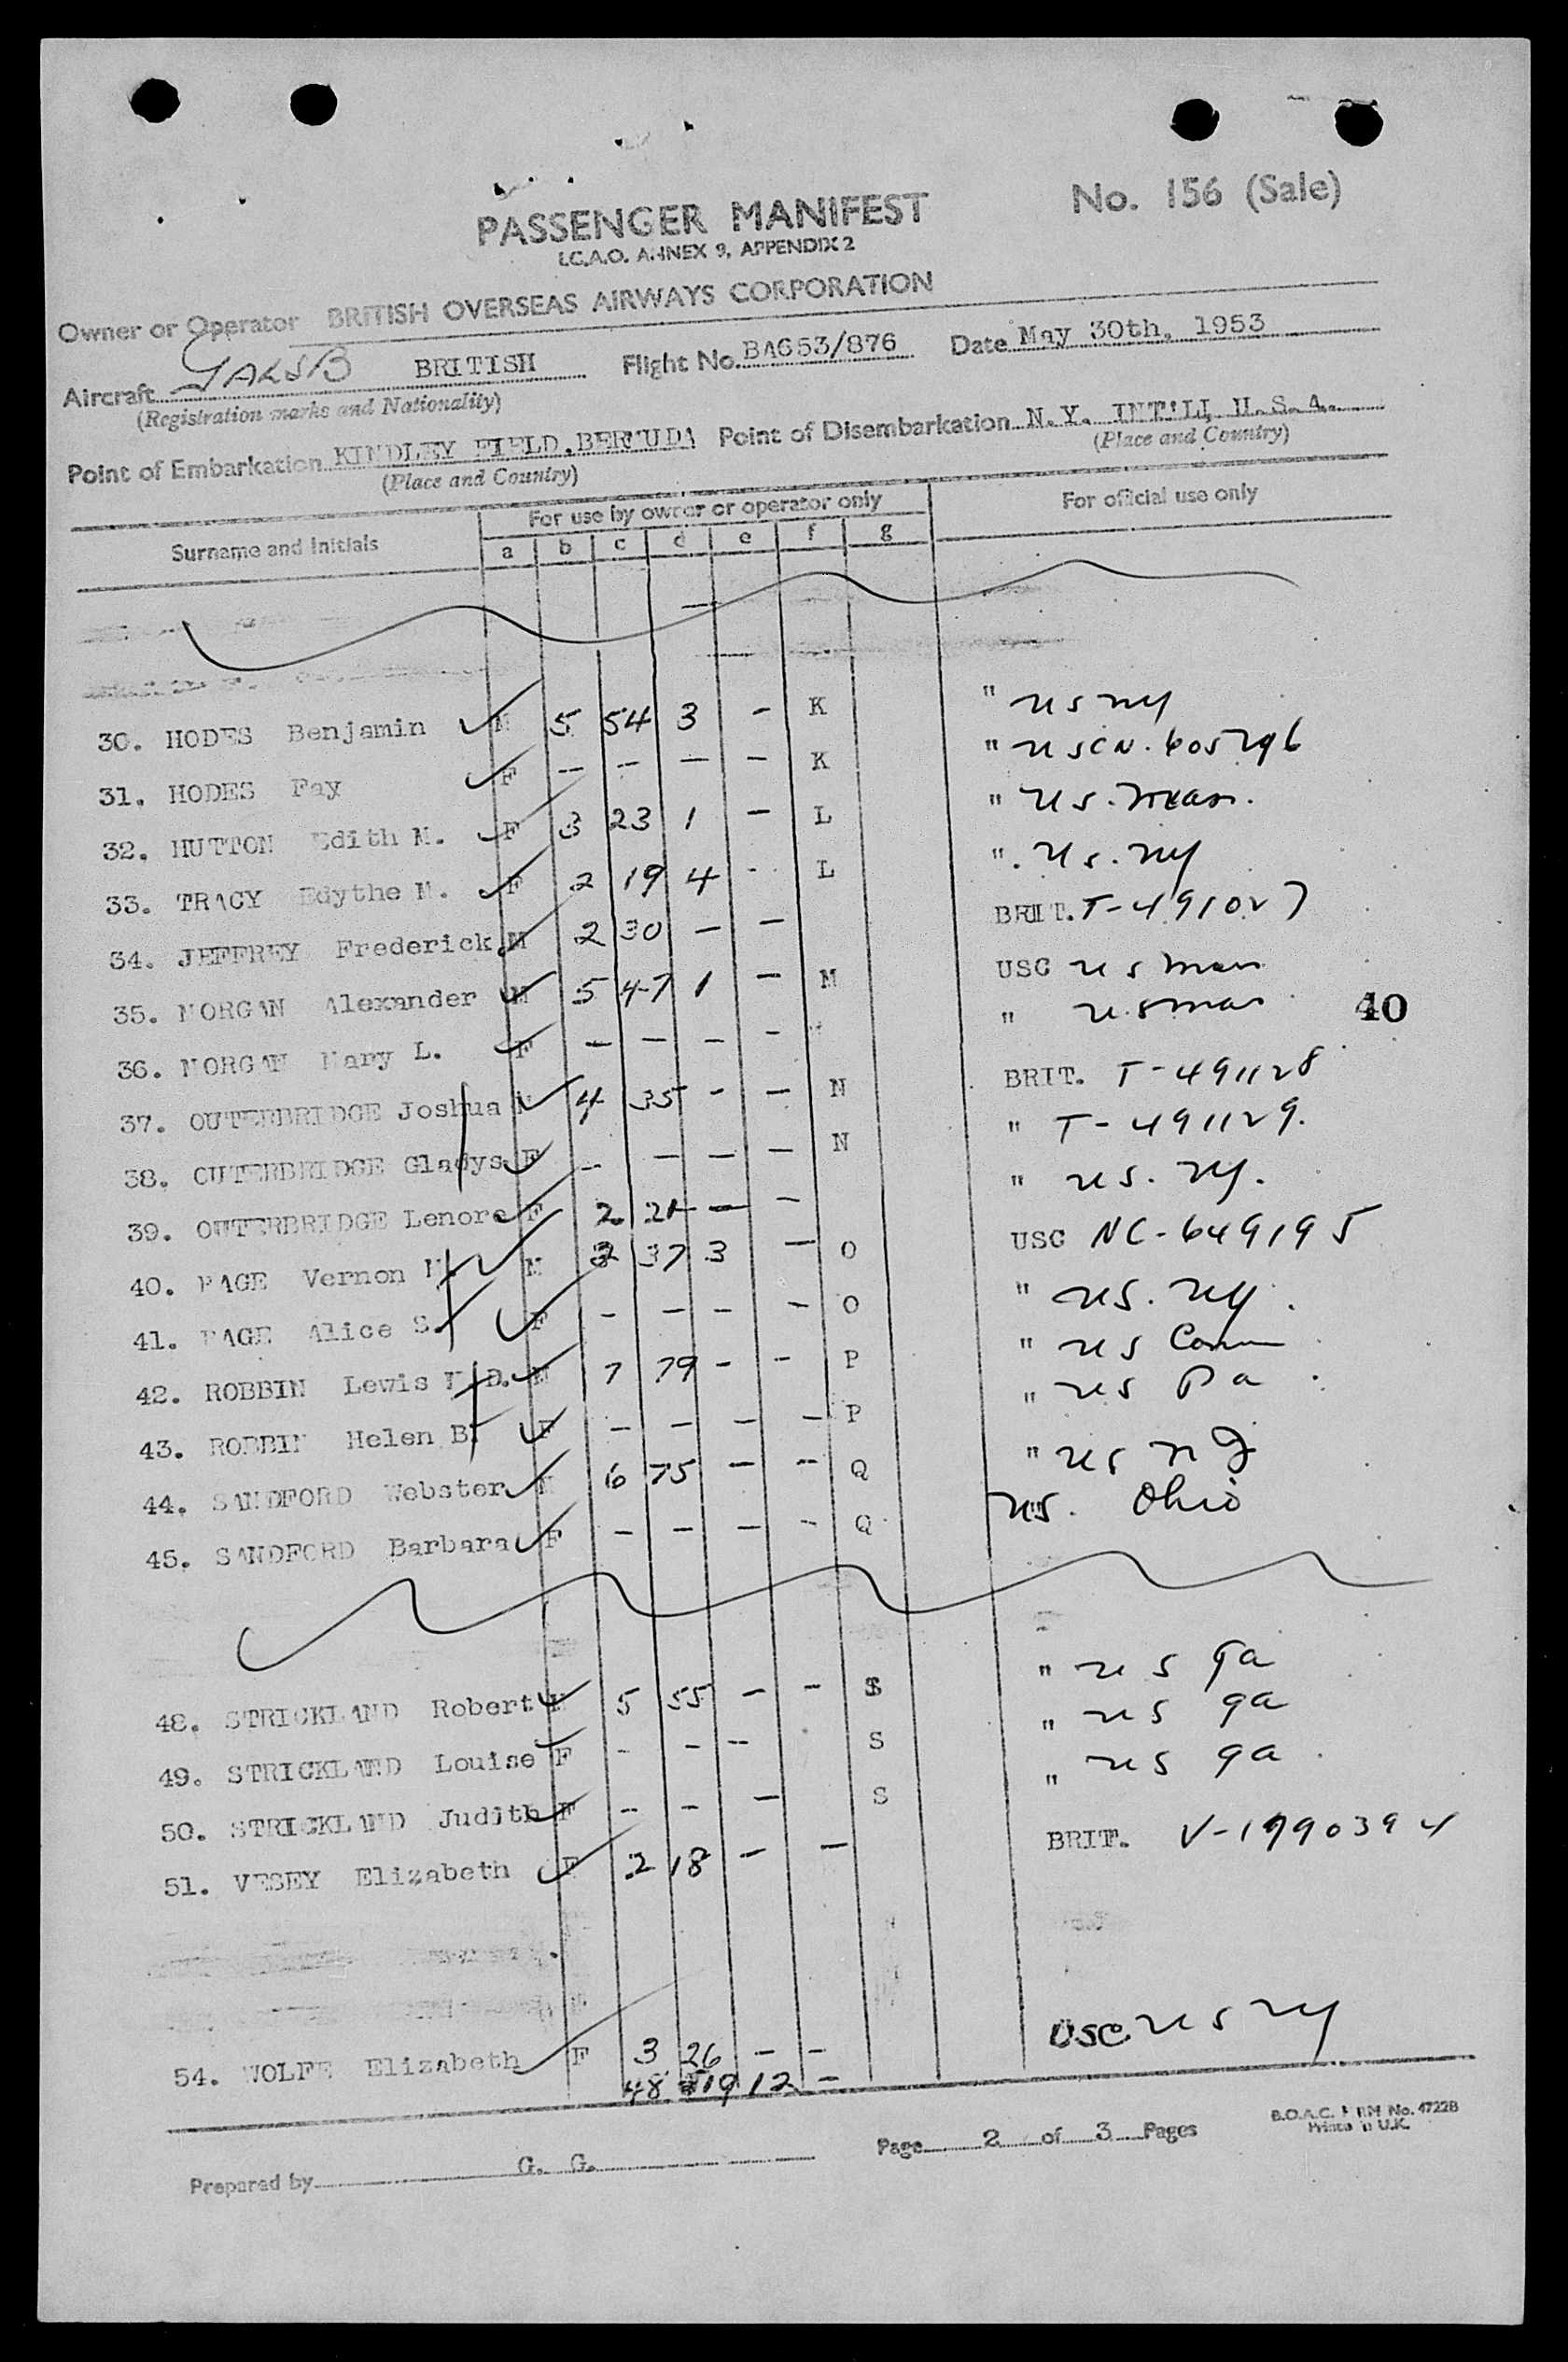 No. 156 (Sale)
PASSENGER MANIFEST
I.C.A.O. ANNEX 9, APPENDIX 2
Owner or Operator BRITISH OVERSEAS AIRWAYS CORPORATION
Aircraft BRITISH Flight No. BA653/876 Date May 30th, 1953
(Registration marks and Nationality)
Point of Embarkation KINDLEY FIELD, BERMUDA Point of Disembarkation N.Y. INT'L, U.S.A.
(Place and Country) (Place and Country)
Surname and Initials For use by owner or operator only For official use only
a b c d e f g
30. HODES Benjamin M 5 54 3 - K " US NY
31. HODES Fay F - - - - K " USCN. 605296
32. HUTTON Edith M. F 3 23 1 - L " US. Mass.
33. TRACY Edythe M. F 2 19 4 - L " US. NY
34. JEFFREY Frederick M 2 30 - - BRIT. T-491027
35. MORGAN Alexander M 5 47 1 - M USC US Mass
36. MORGAN Mary L. F - - - - " US Mass
40
37. OUTERBRIDGE Joshua M 4 35 - - N BRIT. T-491128
38. OUTERBRIDGE Gladys F - - - - N " T-491129.
39. OUTERBRIDGE Lenore F 2 21 - - " US. NY.
40. PAGE Vernon M 3 37 3 - O USC NC-649195
41. PAGE Alice S. F - - - - O " US. NY.
42. ROBBIN Lewis D. M 7 79 - - P " US Conn
43. ROBBIN Helen B. F - - - - P " US Pa
44. SANDFORD Webster M 6 75 - - Q " US NJ
45. SANDFORD Barbara F - - - - Q US. Ohio
48. STRICKLAND Robert M 5 55 - - S " US Ga
49. STRICKLAND Louise F - - - S " US Ga
50. STRICKLAND Judith F - - - S " US Ga.
51. VESEY Elizabeth F 2 18 - - BRIT. V-1990394
54. WOLFE Elizabeth F 3 26 - - USC US NY
48 519 12 -
Prepared by G. G. Page 2 of 3 Pages B.O.A.C. FORM No. 4722B
Printed in U.K.